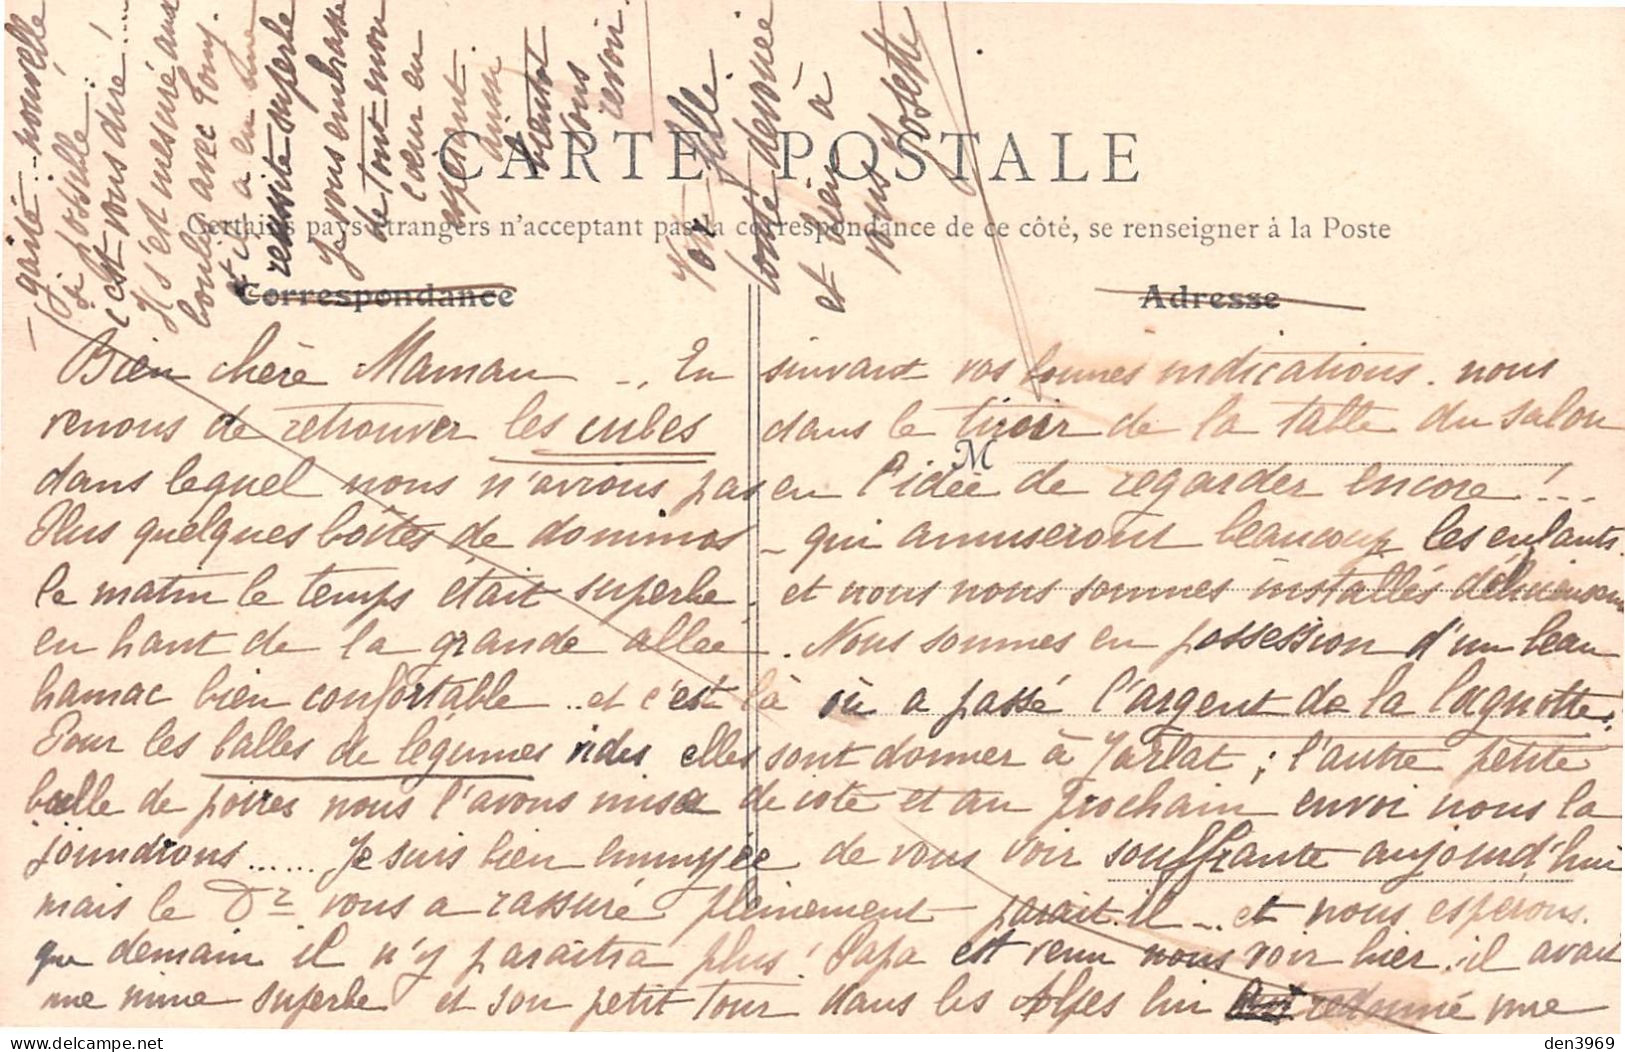 CARTE POSTALE
Certains pays étrangers n'acceptant pas la correspondance de ce côté, se renseigner à la Poste
Correspondance
Adresse
Bien chère Maman _, En suivant vos bonnes indications. nous
venons de retrouver les cubes dans le tiroir de la table du salon
M
dans lequel nous n'avions pas eu l'idée de regarder encore !...
Plus quelques boîtes de dominos – qui amuseront beaucoup les enfants.
le matin le temps était superbe. et nous nous sommes installés délicieusem
en haut de la grande allée. Nous sommes en possession d'un beau
hamac bien confortable .. et c'est là où a passé l'argent de la cagnotte!
Pour les balles de légumes vides elles sont donner à Jarlat ; l'autre petite
balle de poires nous l'avons mise de côté et au prochain envoi nous la
joindrons ...... Je suis bien ennuyée de vous voir souffrante aujourd'hui
mais le Dr vous a rassuré pleinement paraît.il _.. et nous esperons.
que demain il n'y paraîtra plus! Papa est venu nous voir hier. il avait
une mine superbe et son petit tour dans les Alpes lui redonné une
gaîté... nouvelle
si possible
c'est vous dire !...
Il s'est mesuré aux
boules avec Tony.
et il a eu une
réussite superbe
Je vous embrasse
de tout mon
cœur en
espérant
ainsi
bientot
vous
revoir.
Votre fille
toute dévouée
et bien à
vous Josette
den3969